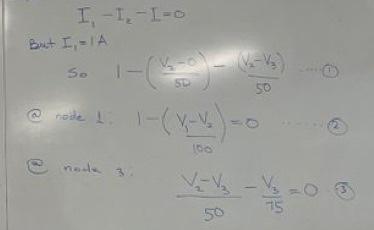 I₁ - I₂ - I = 0
But I₁ = 1A
So 1 - (V₂ - 0 / 50) - (V₂ - V₃) / 50 ..... ①
@ node 1: 1 - (V₁ - V₂ / 100) = 0 ...... ②
@ node 3:
V₂ - V₃ / 50 - V₃ / 75 = 0 ③